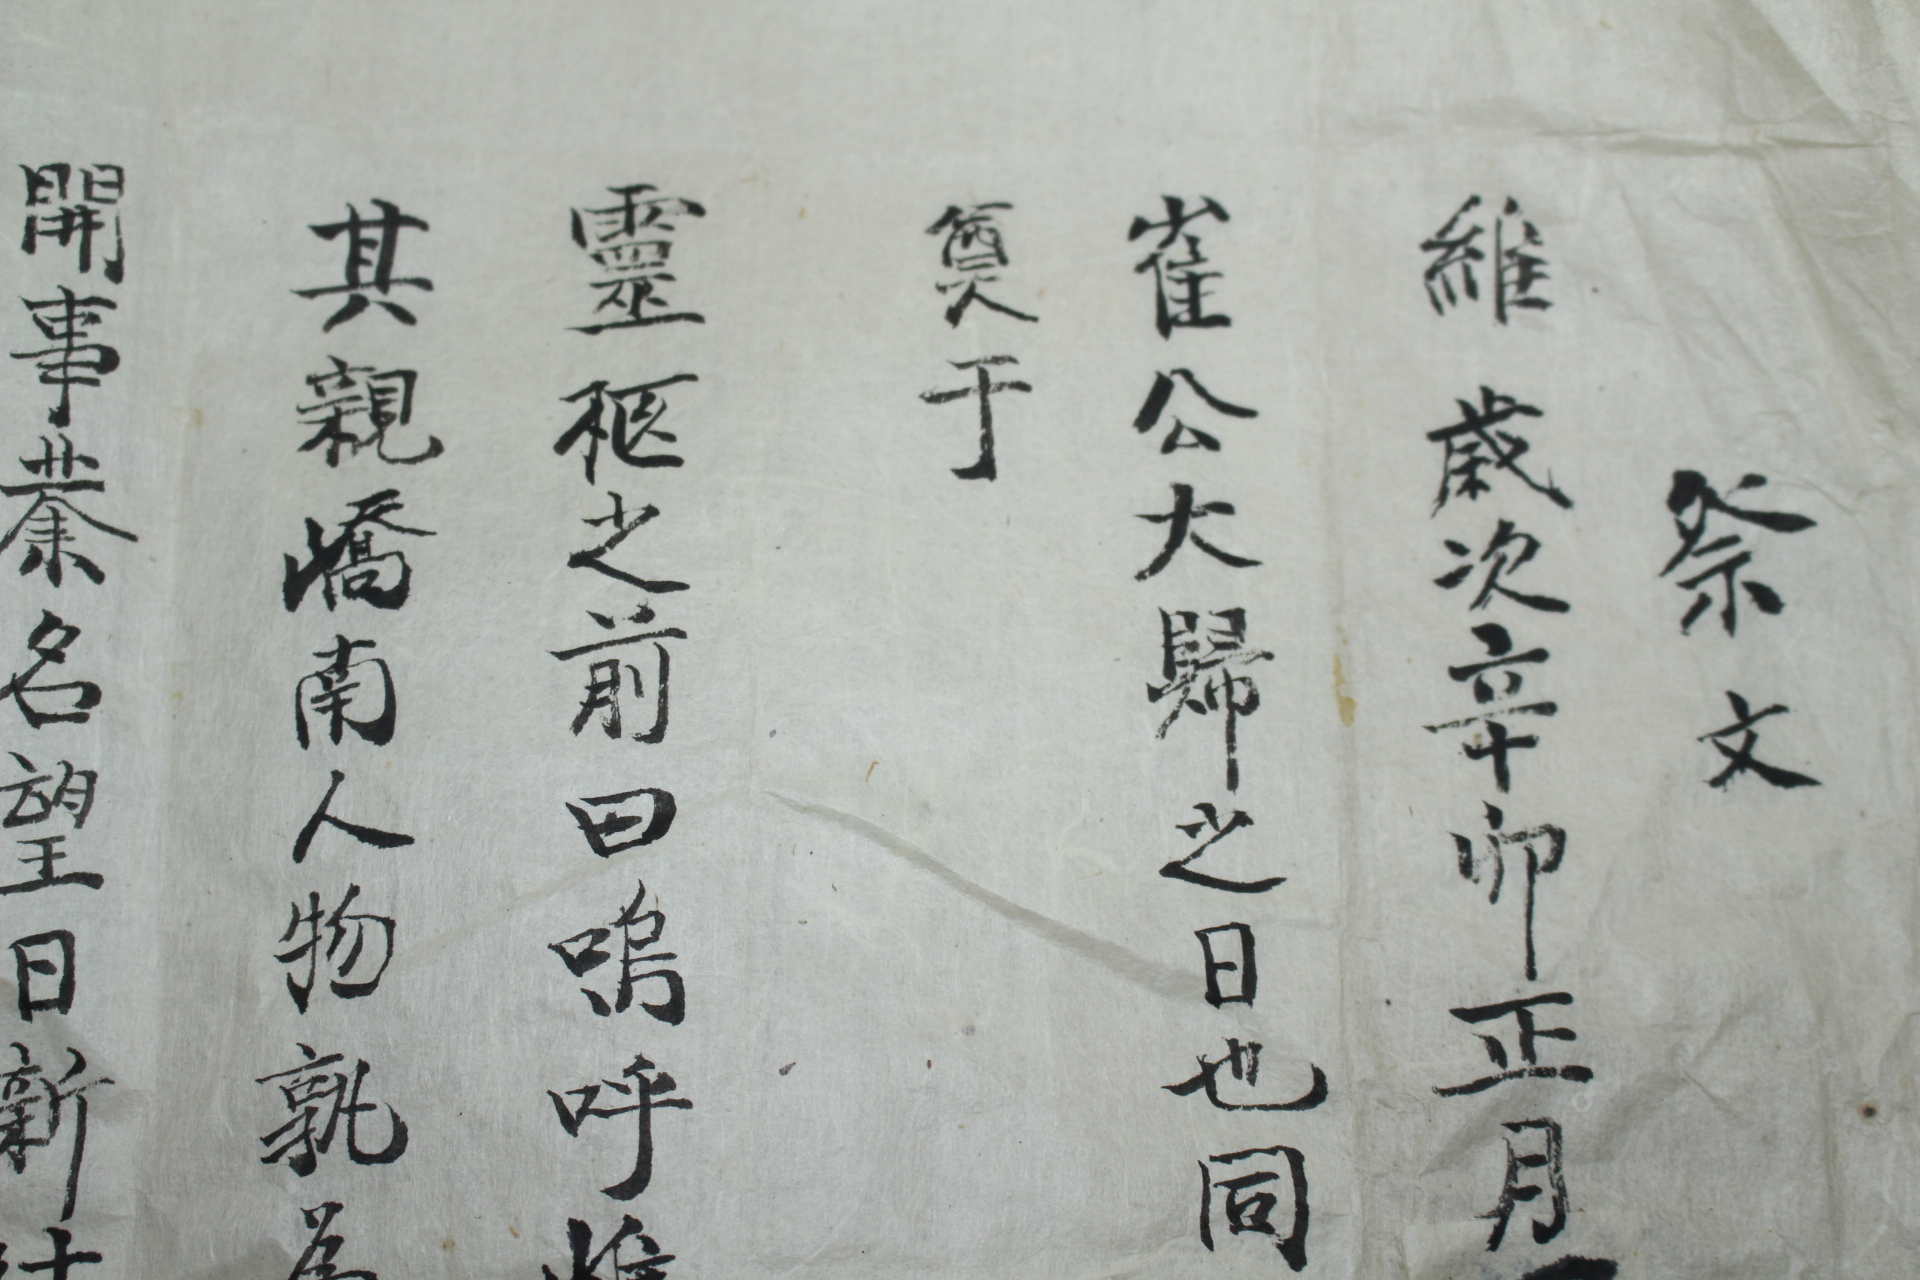 祭文
維歲次辛卯正月
崔公大歸之日也同
奠于
靈柩之前曰嗚呼惟
其親嶠南人物孰為
開事業名望日新